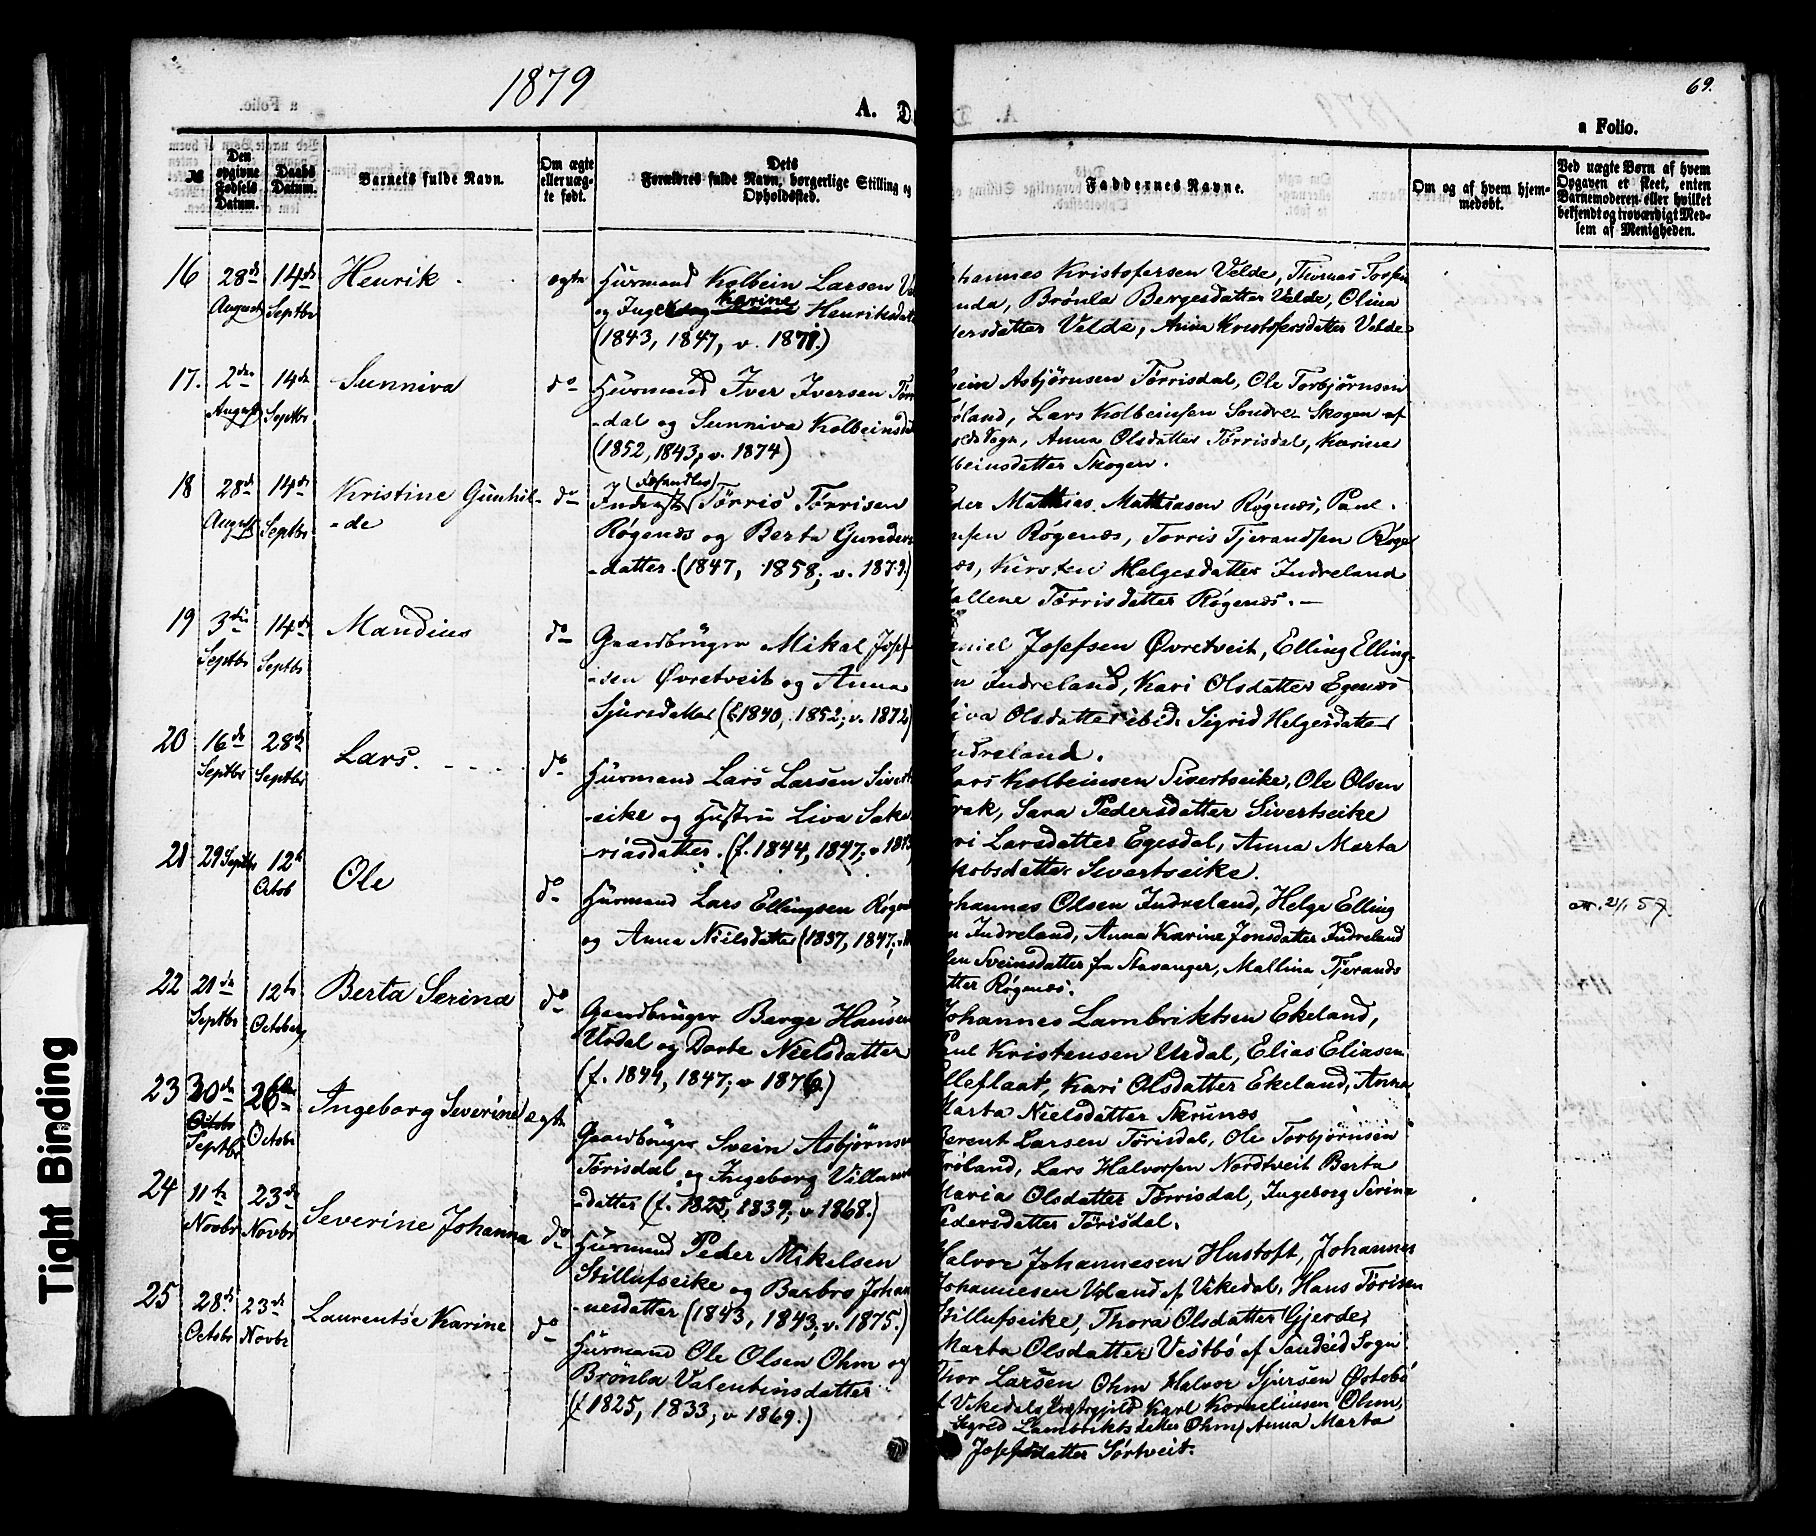 1879
69.
a Folio.
A. D
a Folio.
№
Den opgivne Fødsels Datum.
Daabs Datum.
Barnets fulde Navn.
Om ægte eller uægte født.
Dets Forældres fulde Navn, borgerlige Stilling og Opholdssted.
Faddernes Navne.
Om og af hvem hjemmedøbt.
Ved uægte Børn af hvem Opgaven et skeet, enten Barnemoderen eller hvilket bekjendt og troværdigt Medlem af Menigheden.
16 28de August 14de Septbr Henrik ægte
Husmand Kolbein Larsen
og Inge Karine Henriksdat
(1843, 1847, v. 1871.)
hannes Kristofersen Velde, Thomas Torsen
nda, Brønla Bergesdatter Velde, Olina
dersdatter Velde, Anna Kristofersdatter Velde
17. 2den August 14de Septbr Sunniva do
Husmand Iver Iversen Tørr
-dal og Sunniva Kolbeinsdat
(1852, 1843, v. 1874)
ein Asbjørnsen Tørrisdal, Ole Torbjørnsen
øland, Lars Kolbeinsen Søndre-Skogen af
Sogn, Anna Olsdatter Tørrisdal, Karine
lbeinsdatter Skogen.
18 28de August 14de Septbr Kristine Gunhil-
-de do
Inderst (Forhandler) Tørris Tørrisen
Røgenæs og Berta Gunders
-datter. (1847, 1858; v. 1879.)
der Mathias Mathiasen Røgenæs, Paul
nsen Røgenæs, Torris Tjerandsen Røge
s, Kirsten Helgesdatter Indreland
allene Tørrisdatter Røgenæs.
19 3die Septbr 14de Septbr Mandius do
Gaardbruger Mikal Josef-
-sen Øvretveit og Anna
Sjursdatter (f. 1840, 1852; v. 1872)
aniel Josefsen Øvretveit, Elling Elling-
n Indreland, Kari Olsdatter Egenæs
iva Olsdatter ibid. Sigrid Helgesdatter
ndreland.
20 16de Septbr 28de Septbr Lars. do
Husmand Lars Larsen Sivert
-eike og Hustru Liva Saka
-riasdatter. (f. 1844, 1847; v 187
ars Kolbeinsen Sivertseike, Ole Olsen
rak, Sara Pedersdatter Sivertseike
ri Larsdatter Egesdal, Anna Marta
kobsdatter Sivertseike.
21 29 Septbr 12te Octob Ole do
Husmand Lars Ellingsen Røgen
og Anna Nielsdatter (1837, 1847; v
ohannes Olsen Indreland, Helge Elling
n Indreland, Anna Karine Jonsdatter Indreland
len Sveinsdatter fra Stavanger, Mallina Tjerands
tter Røgenæs.
22 21de Septbr 12te October Berta Serina do
Gaardbruger Berge Hansen
Urdal og Dorte Nielsdatter
(f. 1844, 1847; v 1876)
Johannes Lambriktsen Ekeland,
Paul Kristensen Urdal, Elias Eliasen
lleflaat, Kari Olsdatter Ekeland, Anna
Marta Nielsdatter Skrunæs
23 30de Octbr Septbr 26de Octbr Ingeborg Severine ægte
Gaardbruger Svein Asbjørns
Tørisdal og Ingeborg Villums
-datter (f. 1825, 1839; v 1868.)
Berent Larsen Tørisdal, Ole Torbjørnsen
røland, Lars Halvorsen Nordtveit Berta
Maria Olsdatter Tørrisdal, Ingeborg Serina
Pedersdatter Tørisdal.
24 11te Novbr 23de Novbr Severine Johanna do
Husmand Peder Mikelsen
Stillufseike og Barbro Johan
-nesdatter (1843, 1843; v. 1875.)
Halvor Johannesen Hustoft, Johannes
Johannesen Uland af Vikedal, Hans Tørisen
Stillufseike, Thora Olsdatter Gjerde,
Marta Olsdatter Vestbø af Sandeid Sogn
25 28de Octbr 23de Novbr Laurentse Karine do
Husmand Ole Olsen Ohm og
Brønla Valentinsdatter
(f. 1825, 1833; v 1869.)
Thor Larsen Ohm Halvor Sjursen Østebø
f Vikedals Præstegjeld Karl Korneliusen Ohm,
Sigrid Lambriktsdatter Ohm, Anna Marta
Josefsdatter Sørtveit.
Tight Binding